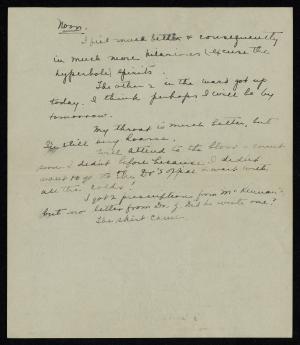 Noon.
I feel much better & consequently
in much more hilarious (excuse the
hyperbole) spirits.
The other 2 in the ward got up
today. I think perhaps I will be by
tomorrow.
My throat is much better, but
I'm still very hoarse.
Will attend to the blood - count
soon - I didn't before because I didn't
want to go to the Dr's office & wait with
all the colds!
I got 2 prescriptions from McKiernan
but no letter from Dr. G. Did he write one?
The skirt came.